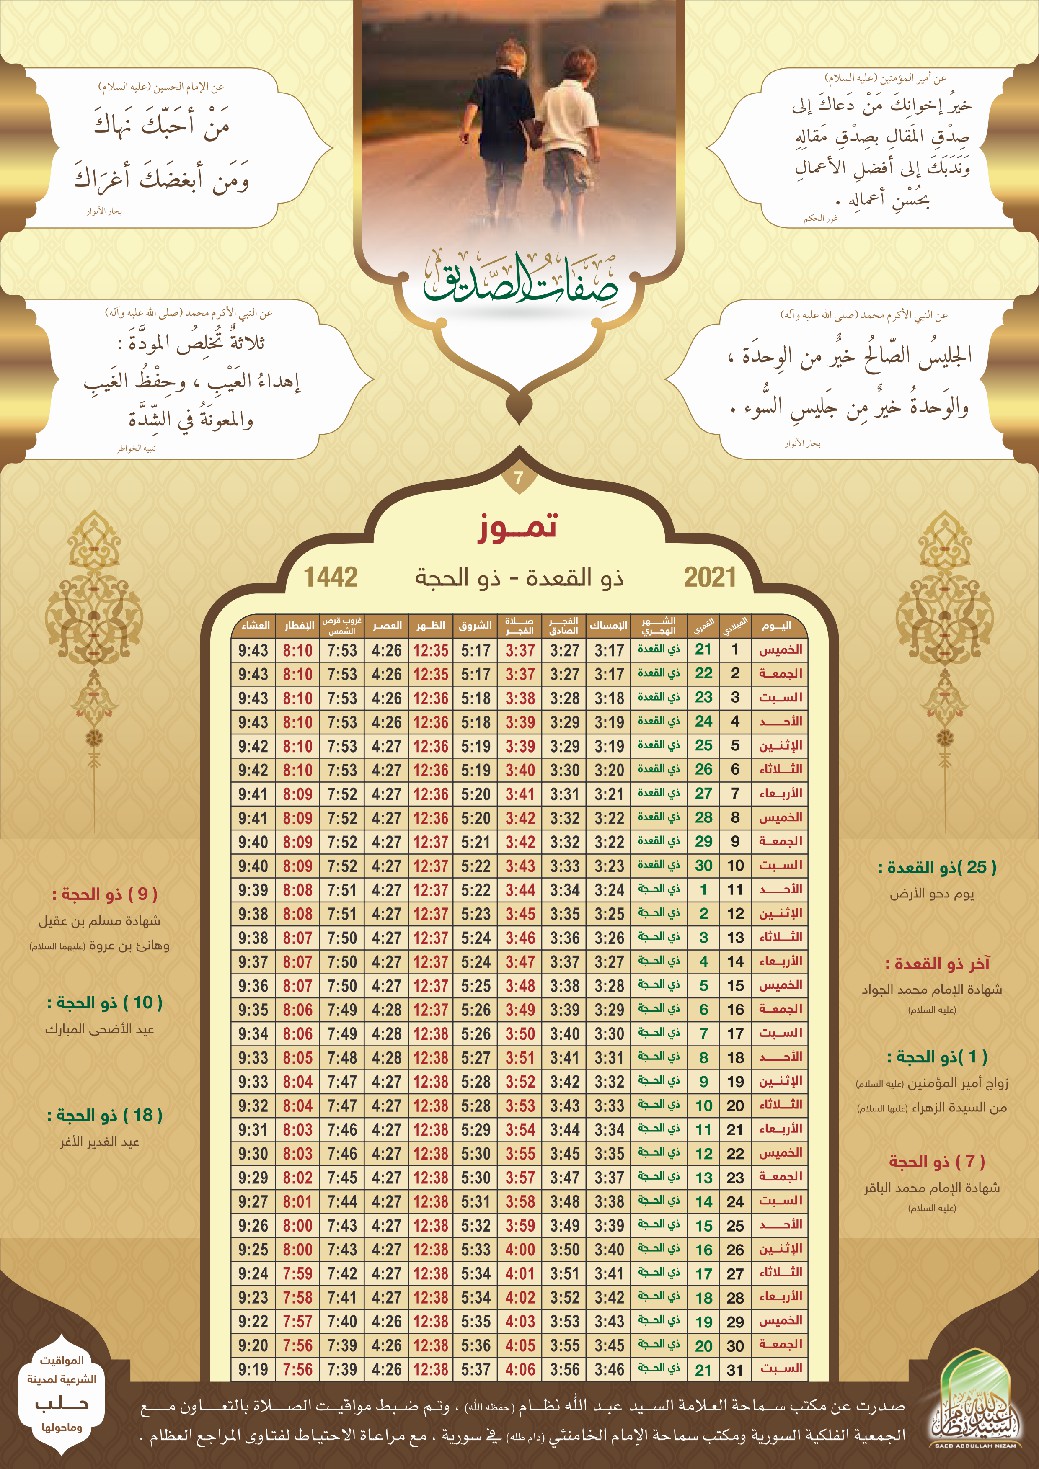 عن أمير المؤمنين (عليه السلام)
خيرُ إخوانِكَ مَنْ دَعاكَ إلى
صِدْقِ المَقالِ بصِدْقِ مَقالِهِ
وَنَدَبَكَ إلى أفضلِ الأعمالِ
بحُسْنِ أعمالِه .
غرر الحكم
عن الإمام الحسين (عليه السلام)
مَنْ أحَبّكَ نَهاكَ
وَمَن أبغضَكَ أغرَاكَ
بحار الأنوار
صفات الصديق
عن النبي الأكرم محمد (صلى الله عليه وآله)
الجليسُ الصّالحُ خيرٌ من الوِحدَة ،
والوَحدةُ خيرٌ مِن جَليسِ السُّوء .
بحار الأنوار
عن النبي الأكرم محمد (صلى الله عليه وآله)
ثلاثةٌ تُخلِصُ المودَّةَ :
إهداءُ العَيْبِ ، وحِفْظُ الغَيبِ
والمعونَةُ في الشِّدَّة
تنبيه الخواطر
7
تمـــوز
2021 ذو القعدة - ذو الحجة 1442
اليـــوم الميلادي القمري الشـــهر الهجـــري الإمساك الفجـــر الصادق صـــلاة الفجـــر الشروق الظـــهر العصـــر غروب قرص الشمس الإفطار العشاء
الخميس 1 21 ذي القعدة 3:17 3:27 3:37 5:17 12:35 4:26 7:53 8:10 9:43
الجمعـــة 2 22 ذي القعدة 3:17 3:27 3:37 5:17 12:35 4:26 7:53 8:10 9:43
الســـبت 3 23 ذي القعدة 3:18 3:28 3:38 5:18 12:36 4:26 7:53 8:10 9:43
الأحـــد 4 24 ذي القعدة 3:19 3:29 3:39 5:18 12:36 4:26 7:53 8:10 9:43
الإثنـين 5 25 ذي القعدة 3:19 3:29 3:39 5:19 12:36 4:27 7:53 8:10 9:42
الثـــلاثاء 6 26 ذي القعدة 3:20 3:30 3:40 5:19 12:36 4:27 7:53 8:10 9:42
الأربـعاء 7 27 ذي القعدة 3:21 3:31 3:41 5:20 12:36 4:27 7:52 8:09 9:41
الخميس 8 28 ذي القعدة 3:22 3:32 3:42 5:20 12:36 4:27 7:52 8:09 9:41
الجمعـــة 9 29 ذي القعدة 3:22 3:32 3:42 5:21 12:37 4:27 7:52 8:09 9:40
الســـبت 10 30 ذي القعدة 3:23 3:33 3:43 5:22 12:37 4:27 7:52 8:09 9:40
الأحـــد 11 1 ذي الحـجة 3:24 3:34 3:44 5:22 12:37 4:27 7:51 8:08 9:39
الإثنـين 12 2 ذي الحـجة 3:25 3:35 3:45 5:23 12:37 4:27 7:51 8:08 9:38
الثـــلاثاء 13 3 ذي الحـجة 3:26 3:36 3:46 5:24 12:37 4:27 7:50 8:07 9:38
الأربـعاء 14 4 ذي الحـجة 3:27 3:37 3:47 5:24 12:37 4:27 7:50 8:07 9:37
الخميس 15 5 ذي الحـجة 3:28 3:38 3:48 5:25 12:37 4:27 7:50 8:07 9:36
الجمعـــة 16 6 ذي الحـجة 3:29 3:39 3:49 5:26 12:37 4:28 7:49 8:06 9:35
الســـبت 17 7 ذي الحـجة 3:30 3:40 3:50 5:26 12:38 4:28 7:49 8:06 9:34
الأحـــد 18 8 ذي الحـجة 3:31 3:41 3:51 5:27 12:38 4:28 7:48 8:05 9:33
الإثنـين 19 9 ذي الحـجة 3:32 3:42 3:52 5:28 12:38 4:27 7:47 8:04 9:33
الثـــلاثاء 20 10 ذي الحـجة 3:33 3:43 3:53 5:28 12:38 4:27 7:47 8:04 9:32
الأربـعاء 21 11 ذي الحـجة 3:34 3:44 3:54 5:29 12:38 4:27 7:46 8:03 9:31
الخميس 22 12 ذي الحـجة 3:35 3:45 3:55 5:30 12:38 4:27 7:46 8:03 9:30
الجمعـــة 23 13 ذي الحـجة 3:37 3:47 3:57 5:30 12:38 4:27 7:45 8:02 9:29
الســـبت 24 14 ذي الحـجة 3:38 3:48 3:58 5:31 12:38 4:27 7:44 8:01 9:27
الأحـــد 25 15 ذي الحـجة 3:39 3:49 3:59 5:32 12:38 4:27 7:43 8:00 9:26
الإثنـين 26 16 ذي الحـجة 3:40 3:50 4:00 5:33 12:38 4:27 7:43 8:00 9:25
الثـــلاثاء 27 17 ذي الحـجة 3:41 3:51 4:01 5:34 12:38 4:27 7:42 7:59 9:24
الأربـعاء 28 18 ذي الحـجة 3:42 3:52 4:02 5:34 12:38 4:27 7:41 7:58 9:23
الخميس 29 19 ذي الحـجة 3:43 3:53 4:03 5:35 12:38 4:26 7:40 7:57 9:22
الجمعـــة 30 20 ذي الحـجة 3:45 3:55 4:05 5:36 12:38 4:26 7:39 7:56 9:20
الســـبت 31 21 ذي الحـجة 3:46 3:56 4:06 5:37 12:38 4:26 7:39 7:56 9:19
( 25 )ذو القعدة :
يوم دحو الأرض
آخر ذو القعدة :
شهادة الإمام محمد الجواد
(عليه السلام)
( 1 )ذو الحجة :
زواج أمير المؤمنين (عليه السلام)
من السيدة الزهراء (عليها السلام)
( 7 ) ذو الحجة
شهادة الإمام محمد الباقر
(عليه السلام)
( 9 ) ذو الحجة :
شهادة مسلم بن عقيل
وهانئ بن عروة (عليهما السلام)
( 10 ) ذو الحجة :
عيد الأضحى المبارك
( 18 ) ذو الحجة :
عيد الغدير الأغر
المواقيت
الشرعية لمدينة
حـلـب
وماحولها
صدرت عن مكتب سماحة العلامة السيد عبد الله نظـام (حفظه الله) ، وتم ضبـط مواقيـت الصـلاة بالتعـاون مـع
الجمعية الفلكية السورية ومكتب سماحة الإمام الخامنئي (دام ظله) في سورية ، مع مراعاة الاحتياط لفتاوى المراجع العظام .
السيد عبدالله نظام
SAED ABDULLAH NIZAM